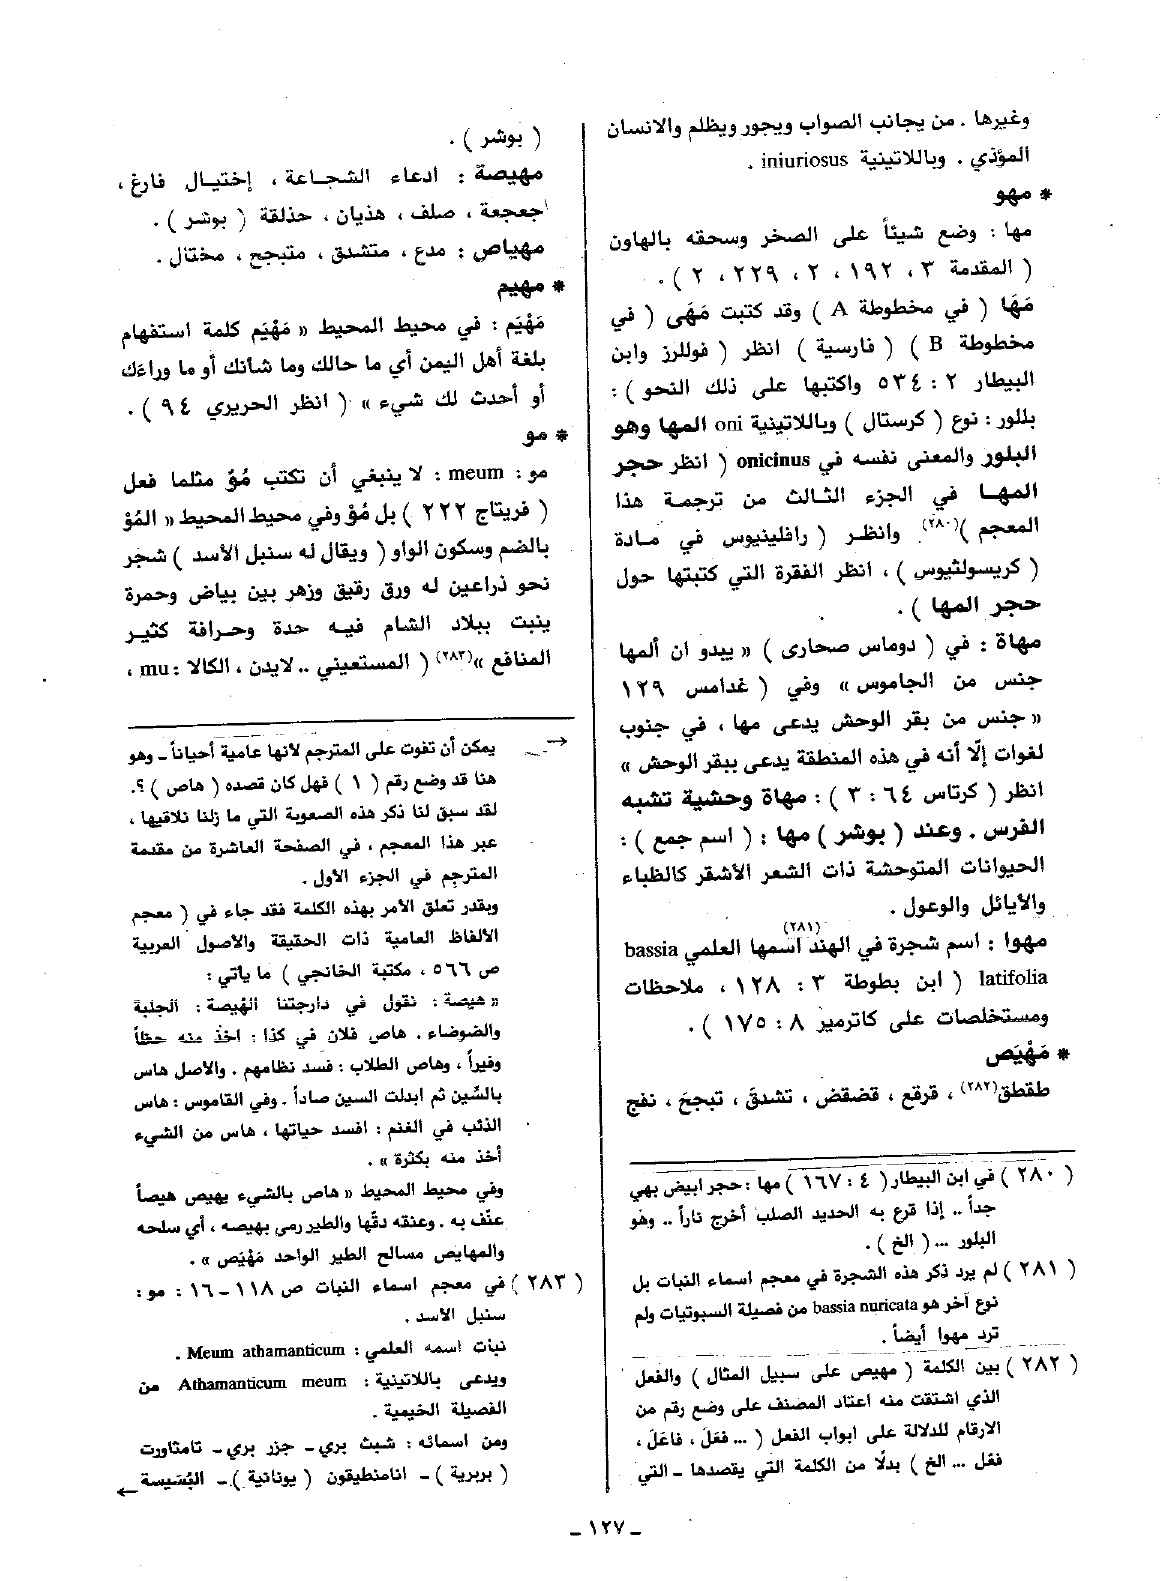 وغيرها . من يجانب الصواب ويجور ويظلم والانسان
المؤذي . وباللاتينية iniuriosus .
* مهو
مها : وضع شيئاً على الصخر وسحقه بالهاون
( المقدمة ٣ ، ١٩٢ ، ٢ ، ٢٢٩ ، ٢ ) .
مَهَا ( في مخطوطة A ) وقد كتبت مَهَى ( في
مخطوطة B ) ( فارسية ) انظر ( فوللرز وابن
البيطار ٢ : ٥٣٤ واكتبها على ذلك النحو ) :
بللور : نوع ( كرستال ) وباللاتينية oni المها وهو
البلور والمعنى نفسه في onicinus ( انظر حجر
المهـا في الجزء الثـالث من ترجمـة هذا
المعجم )(٢٨٠). وانظـر ( رافلينيوس في مـادة
( كريسولثيوس ) ، انظر الفقرة التي كتبتها حول
حجر المها ) .
مهاة : في ( دوماس صحارى ) « يبدو ان ألمها
جنس من الجاموس » وفي ( غدامس ١٢٩
« جنس من بقر الوحش يدعى مها ، في جنوب
لغوات إلّا أنه في هذه المنطقة يدعى ببقر الوحش »
انظر ( كرتاس ٦٤ : ٣ ) : مهاة وحشية تشبه
الفرس . وعند ( بوشر ) مها : ( اسم جمع ) :
الحيوانات المتوحشة ذات الشعر الأشقر كالظباء
والأيائل والوعول .
مهوا : اسم شجرة في الهند(٢٨١) اسمها العلمي bassia
latifolia ( ابن بطوطة ٣ : ١٢٨ ، ملاحظات
ومستخلصات على كاترمير ٨ : ١٧٥ ) .
* مَهْيَص
طقطق(٢٨٢) ، قرقع ، قضقض ، تشدقَ ، تبجحَ ، نفج
( ٢٨٠ ) في ابن البيطار ( ٤ : ١٦٧ ) مها : حجر ابيض بهي
جداً .. إذا قرع به الحديد الصلب أخرج ناراً .. وهو
البلور ... ( الخ ) .
( ٢٨١ ) لم يرد ذكر هذه الشجرة في معجم اسماء النبات بل
نوع آخر هو bassia nuricata من فصيلة السبوتيات ولم
ترد مهوا أيضاً .
( ٢٨٢ ) بين الكلمة ( مهيص على سبيل المثال ) والفعل
الذي اشتقت منه اعتاد المصنف على وضع رقم من
الارقام للدلالة على ابواب الفعل ( ... فعَلَ ، فاعَلَ ،
فعّل ... الخ ) بدلًا من الكلمة التي يقصدها ـ التي
( بوشر ) .
مهيصة : ادعاء الشجـاعة ، إختيـال فارغ ،
جعجعة ، صلف ، هذيان ، حذلقة ( بوشر ) .
مهياص : مدع ، متشدق ، متبجح ، مختال .
* مهيم
مَهْيَم : في محيط المحيط « مَهْيَم كلمة استفهام
بلغة أهل اليمن أي ما حالك وما شانك أو ما وراءَك
أو أحدث لك شيء » ( انظر الحريري ٩٤ ) .
* مو
مو : meum : لا ينبغي أن تكتب مُوّ مثلما فعل
( فريتاج ٢٢٢ ) بل مُوْ وفي محيط المحيط « المُوْ
بالضم وسكون الواو ( ويقال له سنبل الأسد ) شجر
نحو ذراعين له ورق رقيق وزهر بين بياض وحمرة
ينبت ببلاد الشام فيـه حدة وحـرافة كثيـر
المنافع »(٢٨٣) ( المستعيني .. لايدن ، الكالا : mu ،
← يمكن أن تفوت على المترجم لأنها عامية أحياناً ـ وهو
هنا قد وضع رقم ( ١ ) فهل كان قصده ( هاص ) ؟.
لقد سبق لنا ذكر هذه الصعوبة التي ما زلنا نلاقيها ،
عبر هذا المعجم ، في الصفحة العاشرة من مقدمة
المترجم في الجزء الأول .
وبقدر تعلق الأمر بهذه الكلمة فقد جاء في ( معجم
الألفاظ العامية ذات الحقيقة والأصول العربية
ص ٥٦٦ ، مكتبة الخانجي ) ما يأتي :
« هيصة : نقول في دارجتنا الهُيصة : الجلبة
والضوضاء . هاص فلان في كذا : اخذ منه حظاً
وفيراً ، وهاص الطلاب : فسد نظامهم . والأصل هاس
بالسِّين ثم ابدلت السين صاداً . وفي القاموس : هاس
الذئب في الغنم : افسد حياتها ، هاس من الشيء
أخذ منه بكثرة » .
وفي محيط المحيط « هاص بالشيء يهيص هيصاً
عنّف به . وعنقه دقّها والطير رمى بهيصه ، أي سلحه
والمهايص مسالح الطير الواحد مَهْيَص » .
( ٢٨٣ ) في معجم اسماء النبات ص ١١٨ ـ ١٦ : مو :
سنبل الأسد .
نبات اسمه العلمي : Meum athamanticum .
ويدعى باللاتينية : Athamanticum meum من
الفصيلة الخيمية .
ومن اسمائه : شبث بري ـ جزر بري ـ تامتاورت
( بربرية ) ـ اناﻣنطيقون ( يونانية ) ـ البُسَيسة ←
ـ ١٢٧ ـ